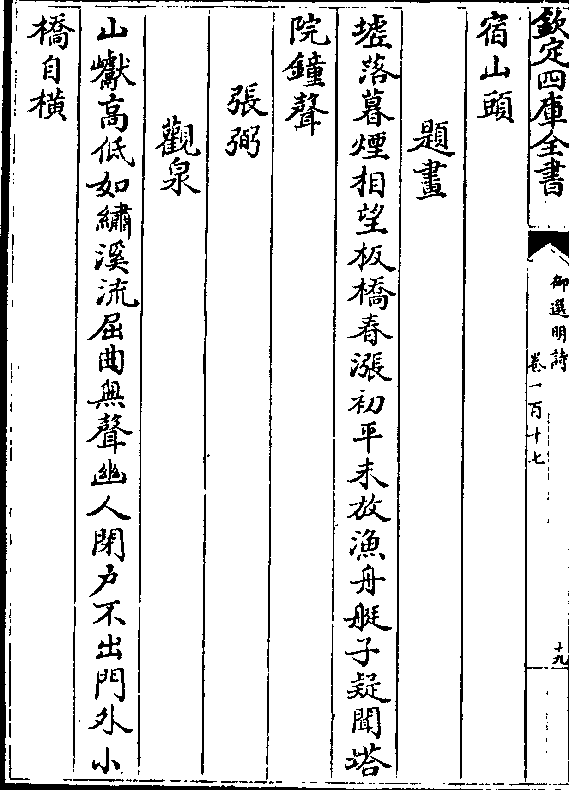 欽定四庫全書
御選明詩
卷一百十七
十九
宿山頭
題畫
墟落暮煙相望板橋春漲初平未放漁舟艇子疑聞塔
院鐘聲
張弼
觀泉
山巘高低如繡溪流屈曲無聲幽人閉户不出門外小
橋自横